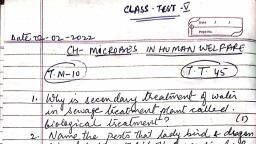 CLASS-TEST-V
Date
Date 12-02-2022
CH- MICROBES IN HUMAN WELFARE
T.M-10 T.T. 45
1. Why is secondary treatment of water
in sewage treatment plant called
biological treatment? (1)
2. Name the pests that lady bird & dragon